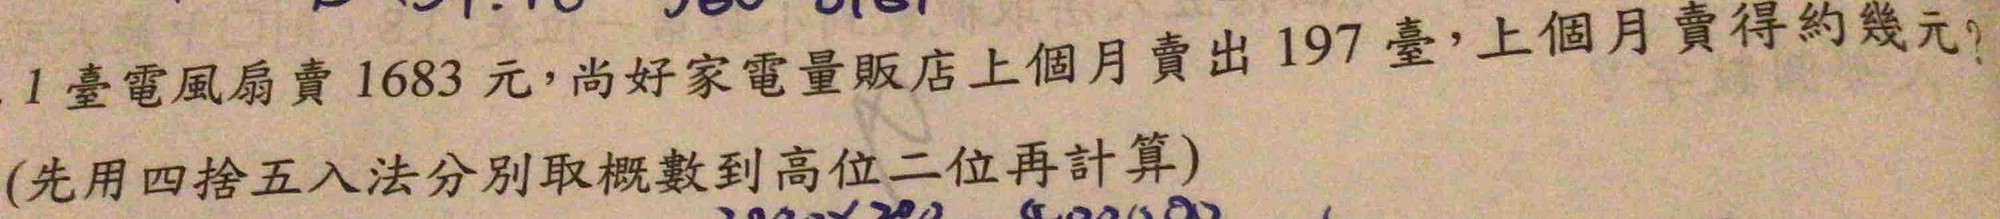 1臺電風扇賣1683元,尚好家電量販店上個月賣出197臺,上個月賣得約幾元?
(先用四捨五入法分別取概數到高位二位再計算)